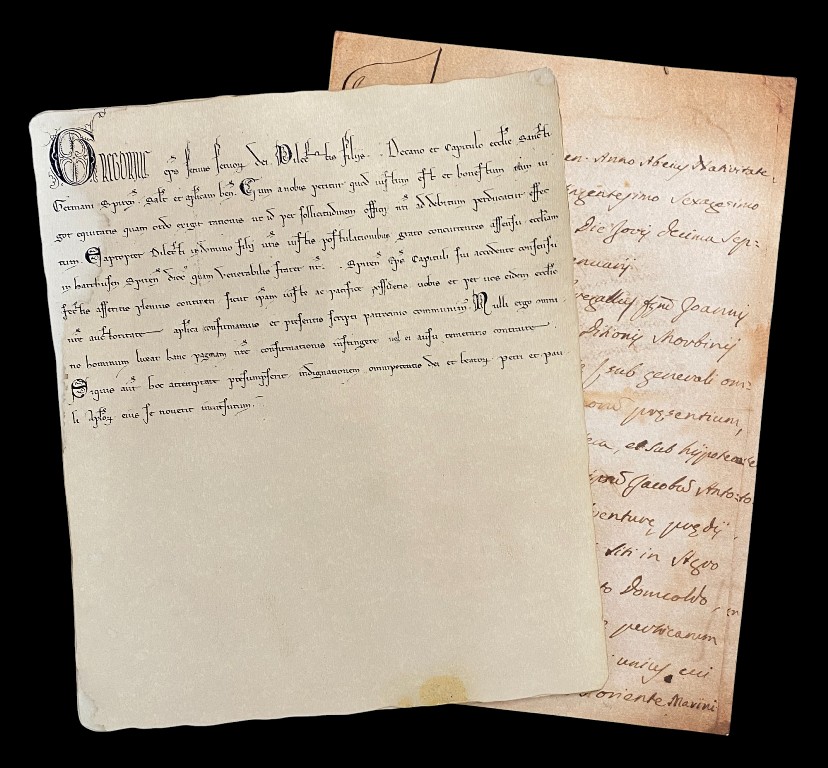 Gregorius eps seruus seruor dei. Dilectis filiis. Decano et Capitulo ecclie Sancti
Germani Spiren. Salt et aplicam ben. Cum a nobis petitur quod iustum est et honestum tam ui
gor equitatis quam ordo exigit rationis ut id per sollicitudinem officii nri ad debitum perducatur effec
tum. Eapropter Dilecti in domino filii uris iustis postulationibus grato concurrentes assensu ecclesiam
in quam venerabilis frater nr. Spiren Eps Capituli sui accedente consensu
plenius contineri sicut eam iuste ac pacifice possidetis uobis et per uos eidem ecclie
auctoritate aplica confirmamus et presentis scripti patrocinio communimus. Nulli ergo omni
no hominum liceat hanc paginam nre confirmationis infringere uel ei ausu temerario contraire.
Siquis aut hoc attemptare presumpserit indignationem omnipotentis dei et beator. Petri et Pau
li Aplor eius se nouerit incursurum.
en. Anno Abeius Natiuitate.
ingentesimo Sexagesimo
Die Jouis decima Sep=
nuarij
Joannis
Ditionis Morbinij
sub generali om=
pręsentium,
et sub hijpotecae
Jacobus Anto:to
uenturę prędij,
siti in Agro
to Domcoldo,
perticarum
unius cui
oriente Marini